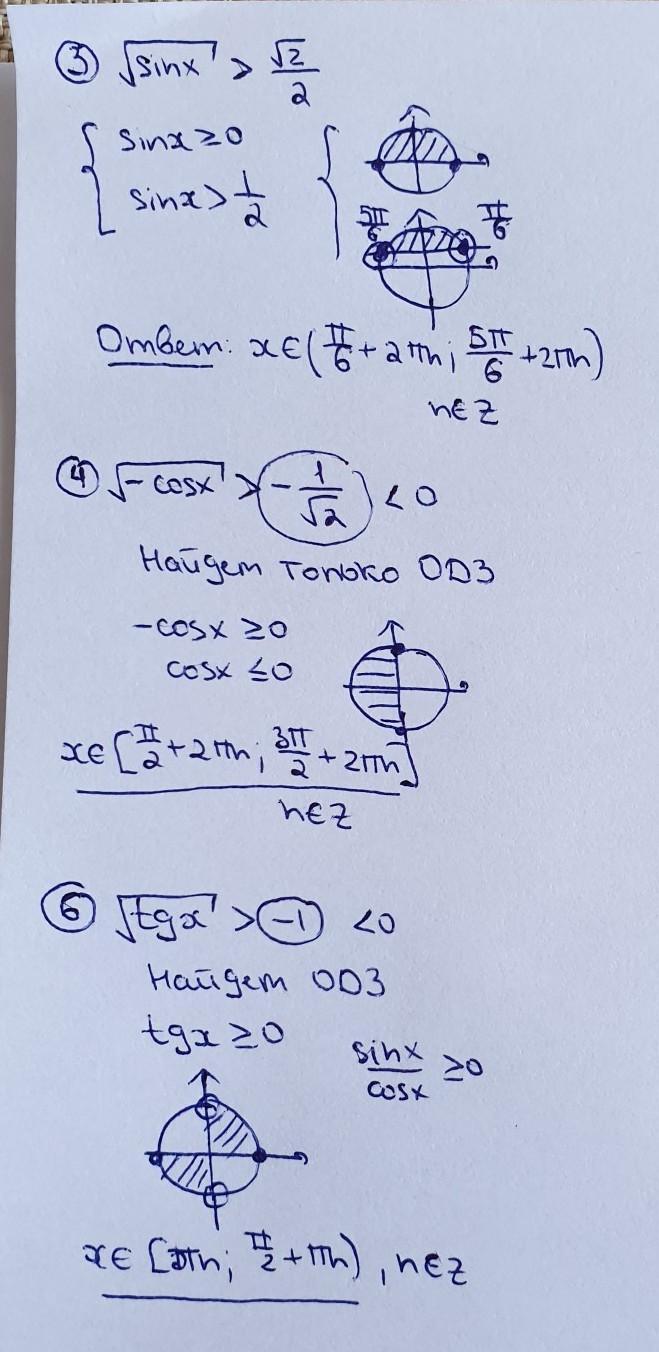 ③ √sinx > √2/2
{ sinx ≥ 0
sinx > 1/2
5π/6 π/6
Ответ: x∈(π/6 + 2πn; 5π/6 + 2πn)
n∈Z
④ √-cosx > -1/√2 < 0
Найдем только ОДЗ
-cosx ≥ 0
cosx ≤ 0
x∈[π/2 + 2πn; 3π/2 + 2πn]
n∈Z
⑥ √tgx > -1 < 0
Найдем ОДЗ
tgx ≥ 0
sinx/cosx ≥ 0
x∈[πn; π/2 + πn), n∈Z